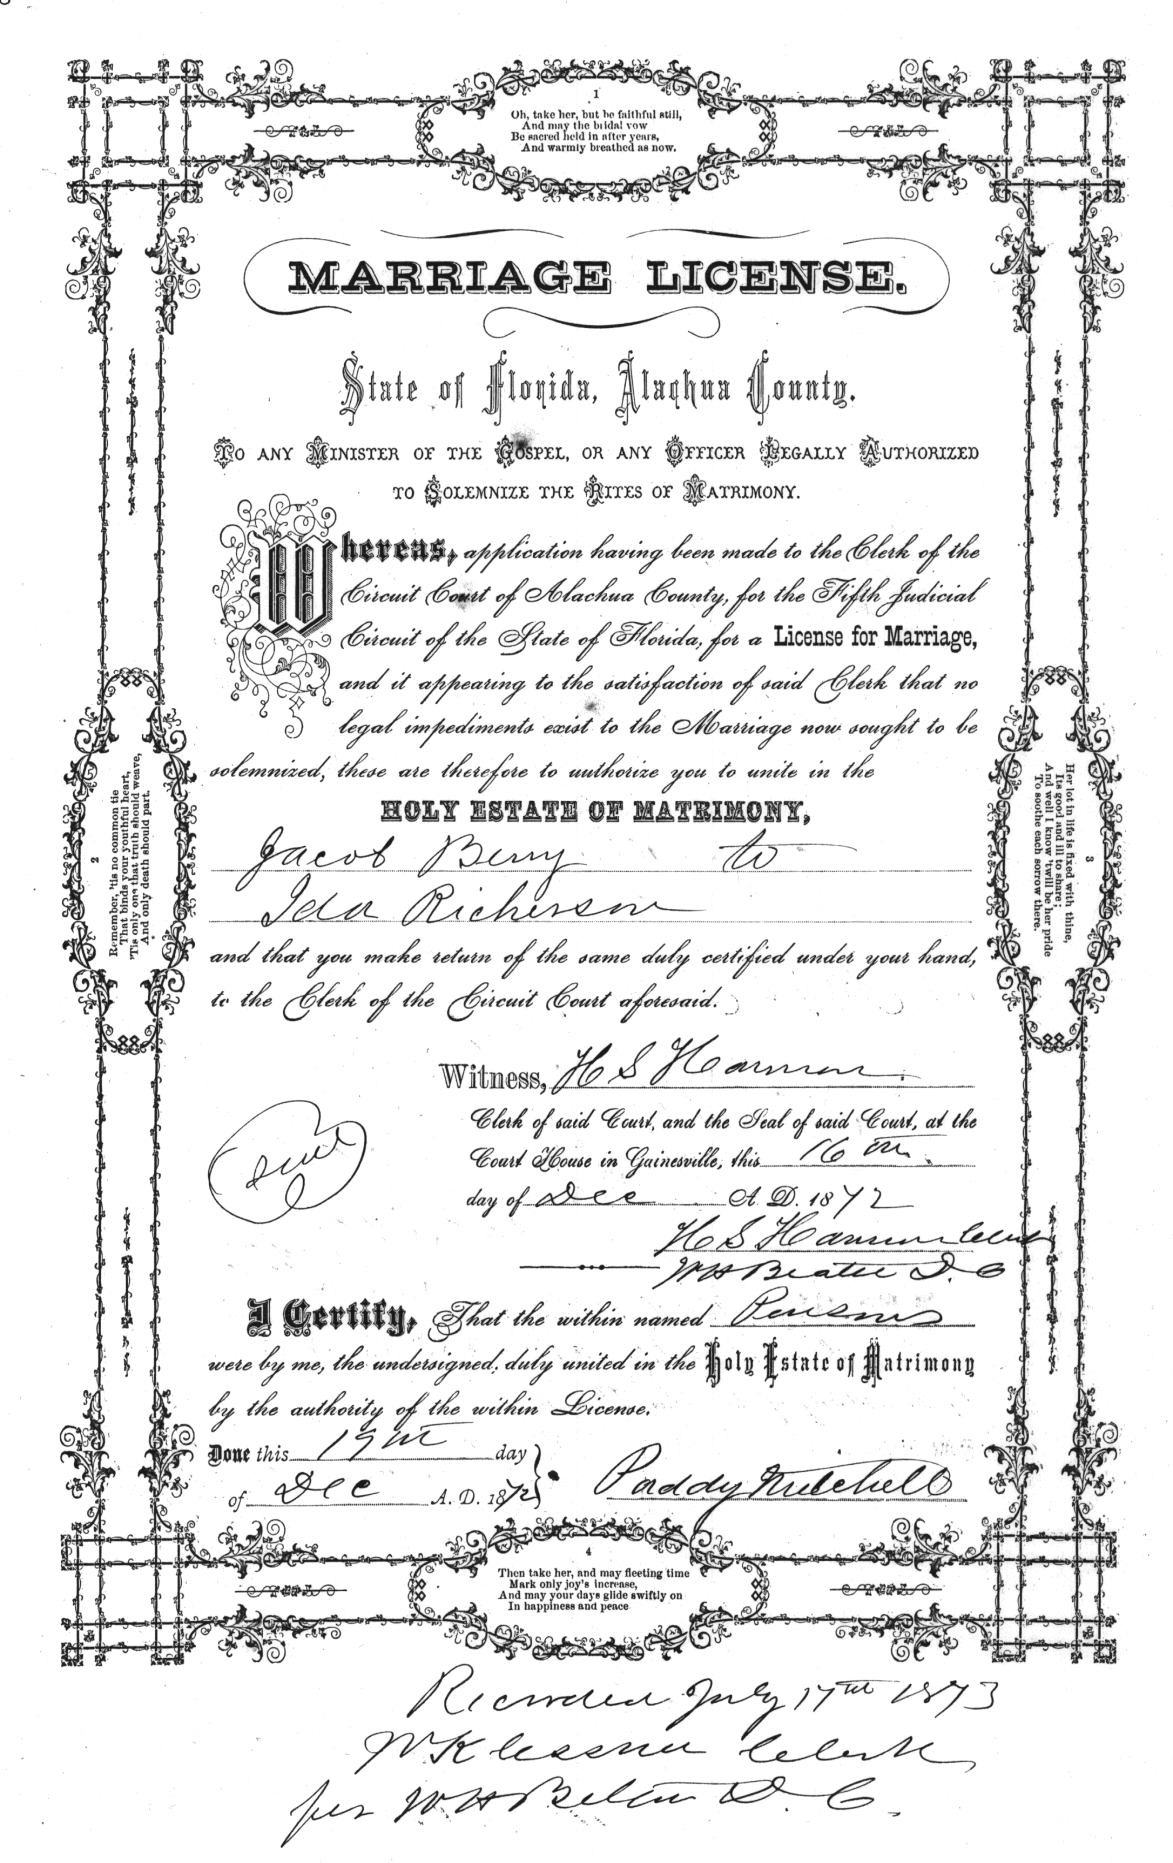 1
Oh, take her, but be faithful still,
And may the bridal vow
Be sacred held in after years,
And warmly breathed as now.
MARRIAGE LICENSE.
State of Florida, Alachua County.
TO ANY MINISTER OF THE GOSPEL, OR ANY OFFICER LEGALLY AUTHORIZED
TO SOLEMNIZE THE RITES OF MATRIMONY.
Whereas, application having been made to the Clerk of the
Circuit Court of Alachua County, for the Fifth Judicial
Circuit of the State of Florida, for a License for Marriage,
and it appearing to the satisfaction of said Clerk that no
legal impediments exist to the Marriage now sought to be
solemnized, these are therefore to authorize you to unite in the
HOLY ESTATE OF MATRIMONY,
Jacob Berry to
Ida Richerson
and that you make return of the same duly certified under your hand,
to the Clerk of the Circuit Court aforesaid.
2
Remember, 'tis no common tie
That binds your youthful heart,
'Tis only one that truth should weave,
And only death should part.
3
Her lot in life is fixed with thine,
Its good and ill to share;
And well I know 'twill be her pride
To soothe each sorrow there.
Witness, H S Harmon
Clerk of said Court, and the Seal of said Court, at the
Court House in Gainesville, this 16th
day of Dec A. D. 1872
Seal
H S Harmon Clerk
W H D. C
I Certify, That the within named Persons
were by me, the undersigned, duly united in the Holy Estate of Matrimony
by the authority of the within License.
Done this 19th day
of Dec A. D. 1872
Paddy Mitchell
4
Then take her, and may fleeting time
Mark only joy's increase,
And may your days glide swiftly on
In happiness and peace
Recorded July 17th 1873
W K Cessna Clerk
per W H D. C.